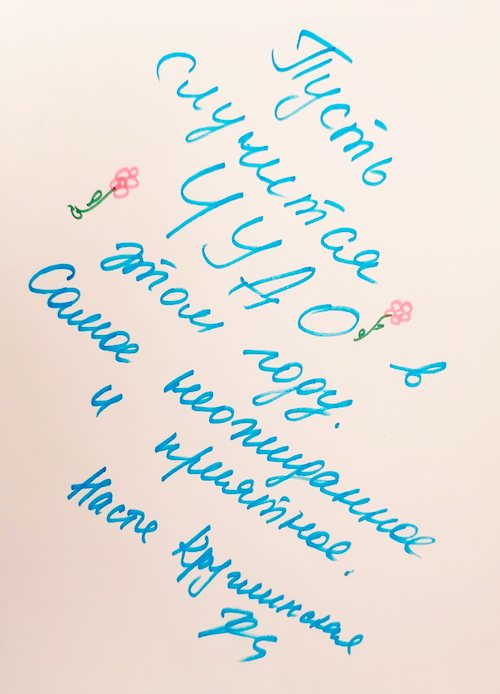 Пусть
случится
ЧУДО в
этом году.
Самое неожиданное
и приятное.
Насте Кругминская